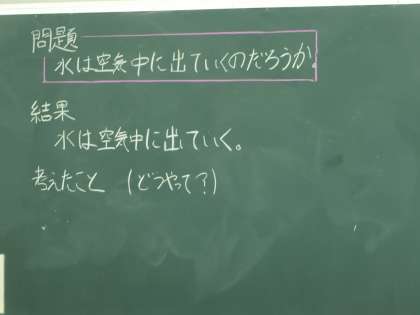 問題
水は空気中に出ていくのだろうか。
結果
水は空気中に出ていく。
考えたこと (どうやって?)